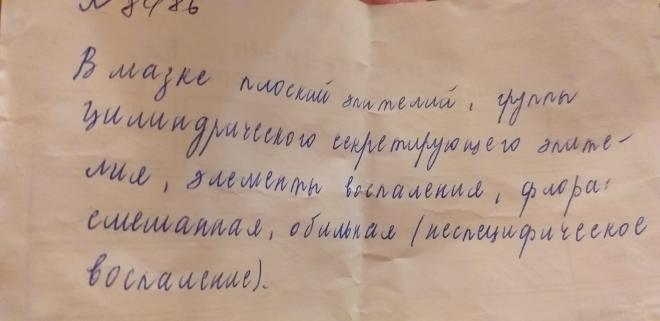 N 8486
В мазке плоский эпителий, группы
цилиндрического секретирующего эпите-
лия, элементы воспаления, флора:
смешанная, обильная (неспецифическое
воспаление).